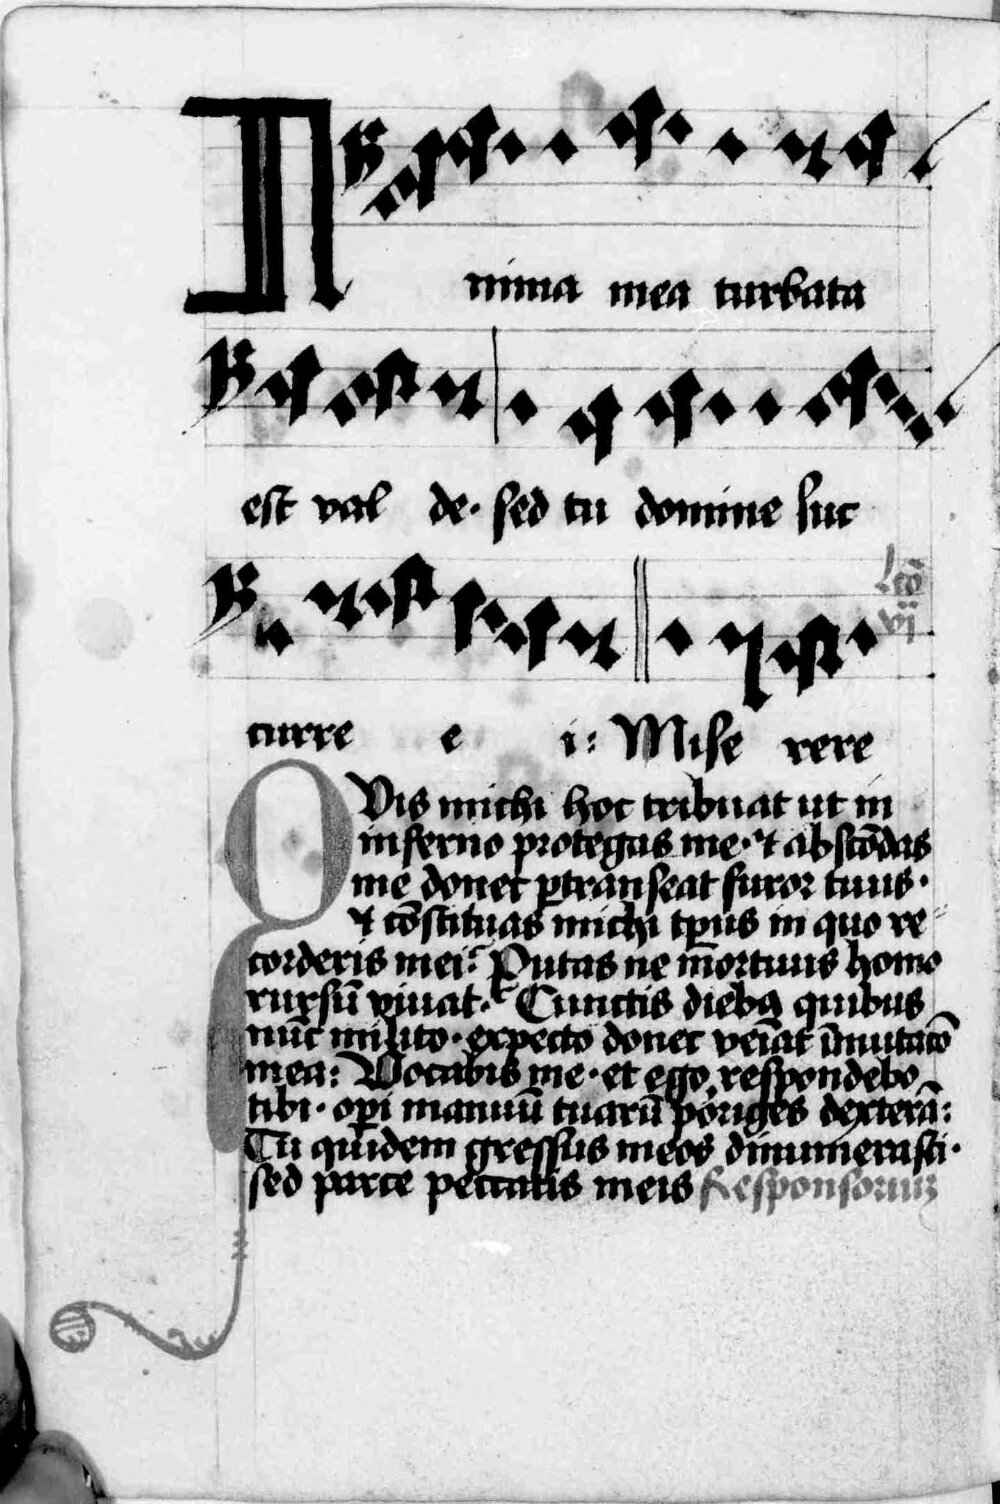 Anima mea turbata
est val de· sed tu domine suc
Lcō
vij
curre e i: Mise rere
QVis michi hoc tribuat ut in
inferno protegas me· ⁊ abscōdas
me donec ꝑtranseat furor tuus·
⁊ cōstituas michi tp̄us in quo re⸗
corderis mei: Putas ne mortuus homo
rursū viuat· Cunctis diebꝫ quibus
nūc milito· expecto donec veīat īmutatō
mea: Vocabis me· et ego respondebo
tibi· oꝑi manuū tuarū poriges dexterā:
Tu quidem gressus meos dinumerasti·
sed parce peccatis meis Responsorium